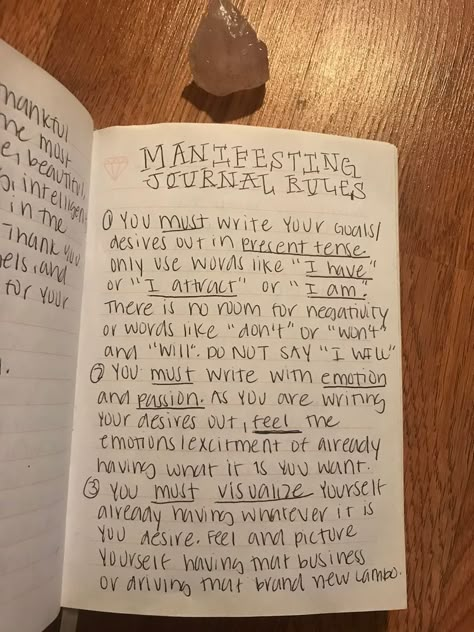 thankful
the most
e, beautiful,
intelligen
in the
Thank you
els, and
for your
MANIFESTING
JOURNAL RULES
① YOU must WRITE YOUR GOALS/
desires out in present tense.
only use words like "I have"
or "I attract" or "I am".
There is no room for negativity
or words like "don't" or "won't"
and "will". DO NOT SAY "I WILL"
② YOU must write with emotion
and passion. As you are writing
your desires out, feel the
emotions/excitment of already
having what it is you want.
③ YOU must visualize yourself
already having whatever it is
you desire. Feel and picture
yourself having that business
or driving that brand new lambo.